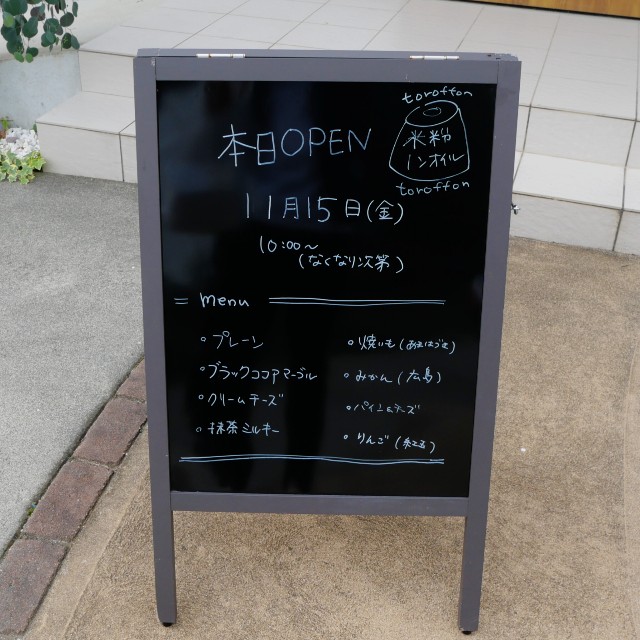 本日OPEN
toroffon
米粉
ノンオイル
toroffon
11月15日(金)
10:00〜
(なくなり次第)
menu
プレーン
ブラックココアマーブル
クリームチーズ
抹茶ミルキー
焼いも(あまはづき)
みかん(広島)
パイン&チーズ
りんご(紅玉)